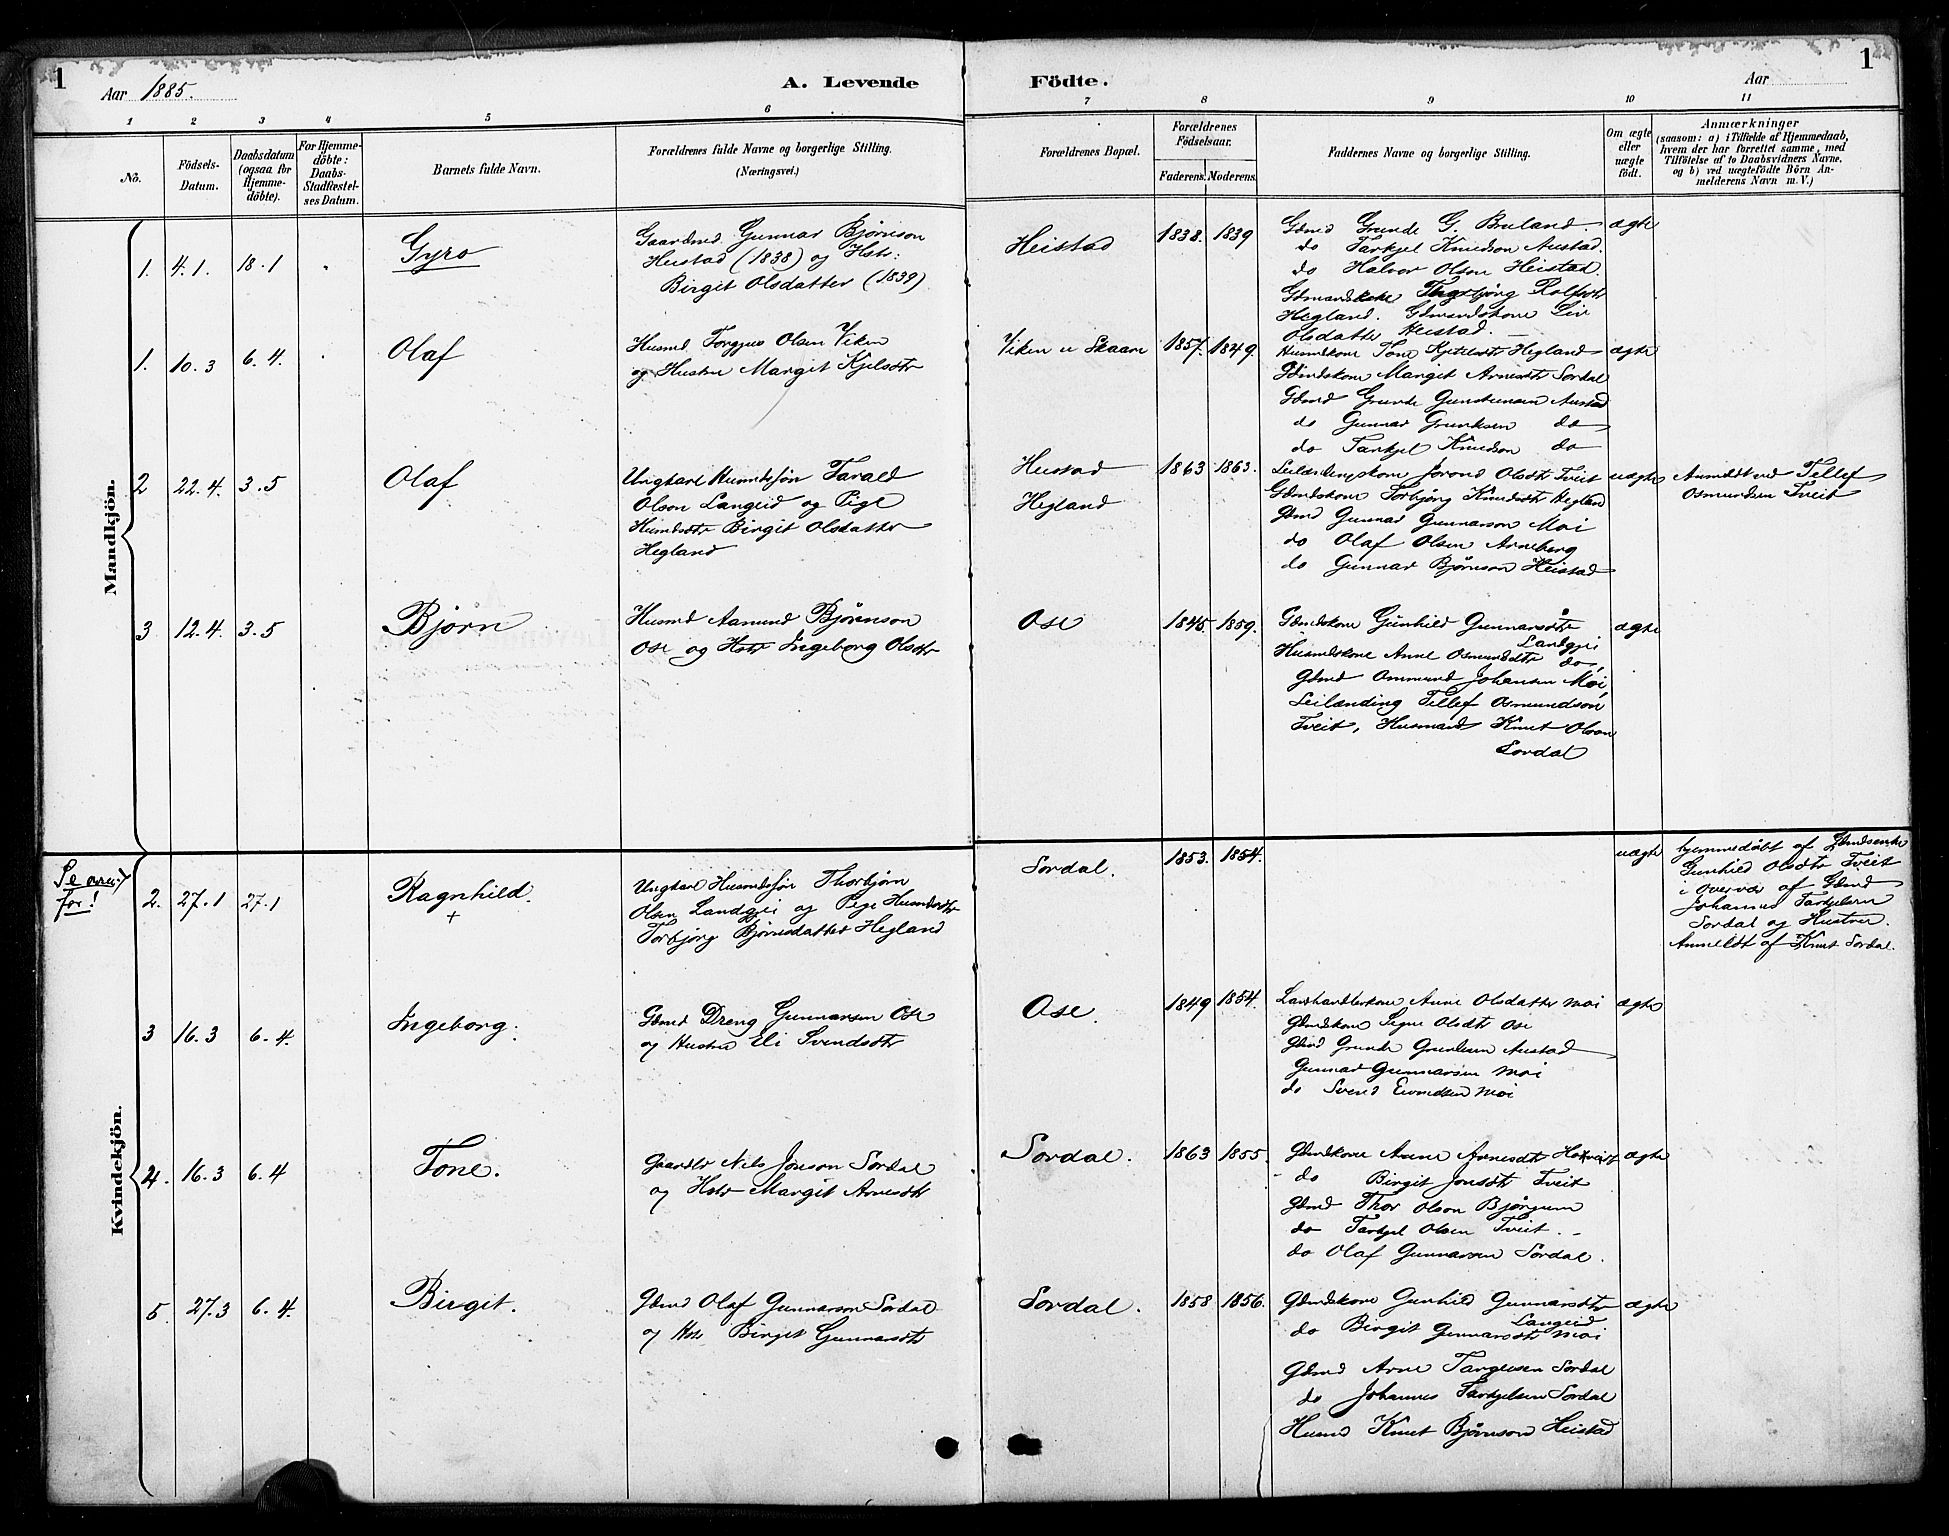 1
Aar 1885.
A. Levende
Födte.
Aar
1
1 2 3 4 5 6 7 8 9 10 11
No.
Födsels-
Datum.
Daabsdatum
(ogsaa for
Hjemme-
döbte).
For Hjemme-
döbte:
Daabs-
Stadfæstel-
ses Datum.
Barnets fulde Navn.
Forældrenes fulde Navne og borgerlige Stilling.
(Næringsvei.)
Forældrenes Bopæl.
Forældrenes
Födselsaar.
Faderens. Moderens.
Faddernes Navne og borgerlige Stilling.
Om ægte
eller
uægte
födt.
Anmærkninger
(saasom: a) i Tilfælde af Hjemmedaab,
hvem der har forrettet samme, med
Tilföielse af to Daabsvidners Navne,
og b) ved uægtefödte Börn An-
melderens Navn m. V.)
Mandkjön.
1. 4.1. 18.1 Gyro
Gaardmd. Gunnar Bjørnson
Heistad (1838) og Hstr:
Birgit Olsdatter (1839)
Heistad 1838. 1839
Gdmd Grunde G. Bruland.
do Tarkjel Knudson Austad.
do Halvor Olson Heistad.
Rolfsdtr
Hegland. Gdmandskone Liv
Olsdatter Heistad.
ægte
1. 10.3 6.4. Olaf
Husmd Torgjus Olsen Viken
og Hustru Margit Kjelsdtr
Viken u Skaare 1857. 1849.
Husmdskone Tone Kjetilsdtr Hegland
Gdmdskone Margit Arnesdtr Sordal
Gdmd Grunde Austad
do Gunnar Grundesen do
do Tarkjel Knudson do
ægte
2 22.4. 3.5 Olaf
Ungkarl Husmdssøn Tarald
Olson Langeid og Pige
Husmdsdtr Birgit Olsdatter
Hegland
Heistad
Hegland
1863 1863.
Jorond Olsdtr Tveit
Gdmdskone Torbjørg Knudsdtr Hegland
Gdmd Gunnar Gunnarson Moi
do Olaf Olsen Arneberg
do Gunnar Bjørnson Heistad
uægte
Anmeldt ved Tellef
Osmundsen Tveit
3 12.4. 3.5 Bjørn
Husmd Aamund Bjørenson
Ose og Hstr Ingeborg Olsdtr
Ose 1845. 1859.
Gdmdskone Gunhild Gunnarsdtr
Landgjei
Husmdskone Anne Osmundsdtr do,
Gdmd Ommund Johansen Moi,
Leilænding Tellef Osmundson
Tveit, Husmand Knut Olson
Sordal
ægte
Kvindekjön.
for!
2. 27.1 27.1 Ragnhild.
+
Ungkarl Husmdssøn Thorbjørn
Olsen Landgjei og Pige Husmdsdtr
Torbjørg Bjørnsdatter Hegland
Sordal. 1853. 1854.
uægte
hjemmedøbt af
Gunhild Olsdtr Tveit
i Overvær af Gdmd
Johannes Tarkjelsen
Sordal og Hustru.
Anmeldt af Knut Sordal.
3 16.3 6.4. Ingeborg.
Gdmd Dreng Gunnarsen Ose
og Hustru Eli Svendsdtr
Ose. 1849 1854.
Landhandlerkone Anne Olsdatter Moi
Gdmdskone Signe Olsdtr Ose
Gdmd Grunde Grundesen Austad
Gunnar Gunnarsen Moi
do Svend Eivindsen Moi
ægte
4. 16.3 6.4 Tone.
Gaardbr Nils Jonson Sordal
og Hstr Margit Arnesdtr
Sordal. 1863 1855.
Gdmdskone Anne Arnesdtr
do Birgit Jonsdtr Tveit
Gdmd Thor Olson Bjørgum
do Tarkjel Olsen Tveit.
do Olaf Gunnarsen Sordal.
ægte
5. 27.3 6.4. Birgit.
Gdmd Olaf Gunnarson Sordal
og Hstr Birgit Gunnarsdtr
Sordal. 1858 1856.
Gdmdskone Gunhild Gunnarsdtr
Langeid
do Birgit Gunnarsdtr Moi
Gdmd Arne Targeosen Sordal
do Johannes Tarkjelsen Sordal
Husmd Knut Bjørnson Heistad
ægte